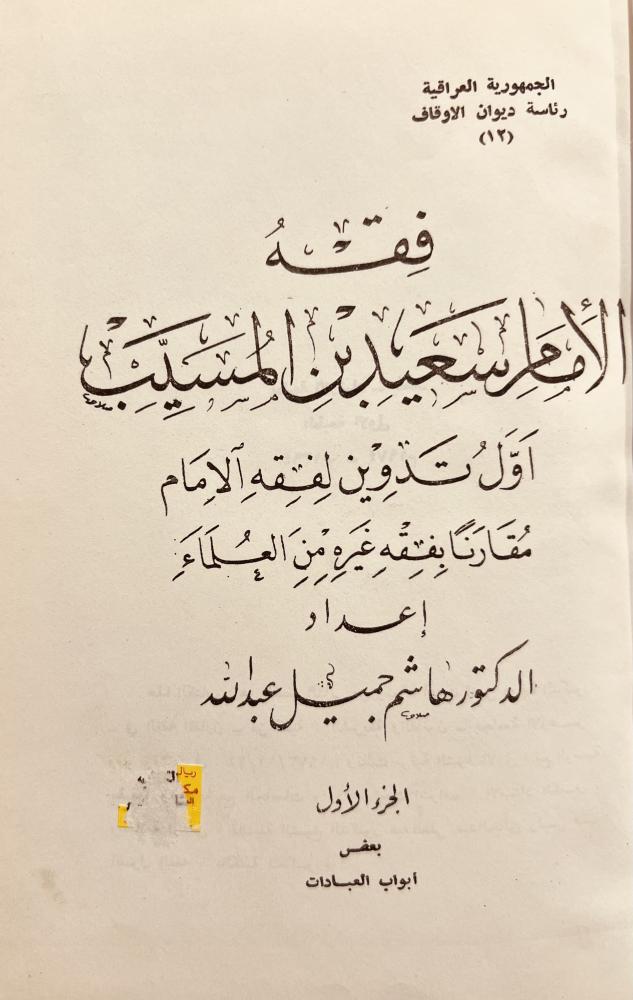 الجمهورية العراقية
رئاسة ديوان الاوقاف
(١٢)
فِقْهُ
الأَمَامِ سَعَيدِ بْنِ المُسَيِّبْ
اَوَّلُ تَدْوِينٍ لِفِقِهِ اَلاِمَام
مُقَارَنًا بِفِقْهِ غَيَرِهِ مِنَ العُلَمَاءِ
إعداد
الدكتور هاشم جميل عبدالله
الجزء الأول
بعض
أبواب العبادات
ريال